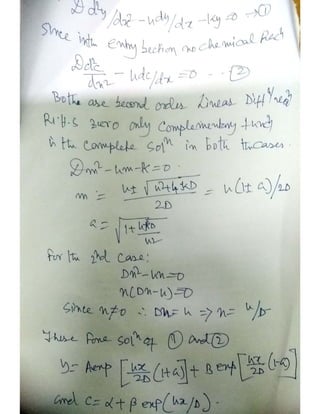 D d²y/dx² - udy/dx - ky = 0 → ①
Since in the entry section no chemical Reach
D d²c/dx² - udc/dx = 0 ... ②
Both are second order Linear Diff
R.H.S zero only complementary funct
is the complete Solⁿ in both the cases.
Dm² - um - k = 0.
m = u ± √(u² + 4kD) / 2D = u(1 ± a)/2D
a = √(1 + 4kD/u²)
For the 2nd case:
Dn² - un = 0
n(Dn - u) = 0
Since n ≠ 0 ∴ Dn = u ⇒ n = u/D
There fore solⁿ of ① and ②
y = A exp [ux/2D (1+a)] + B exp [ux/2D (1-a)]
and C = α + β exp (ux/D).